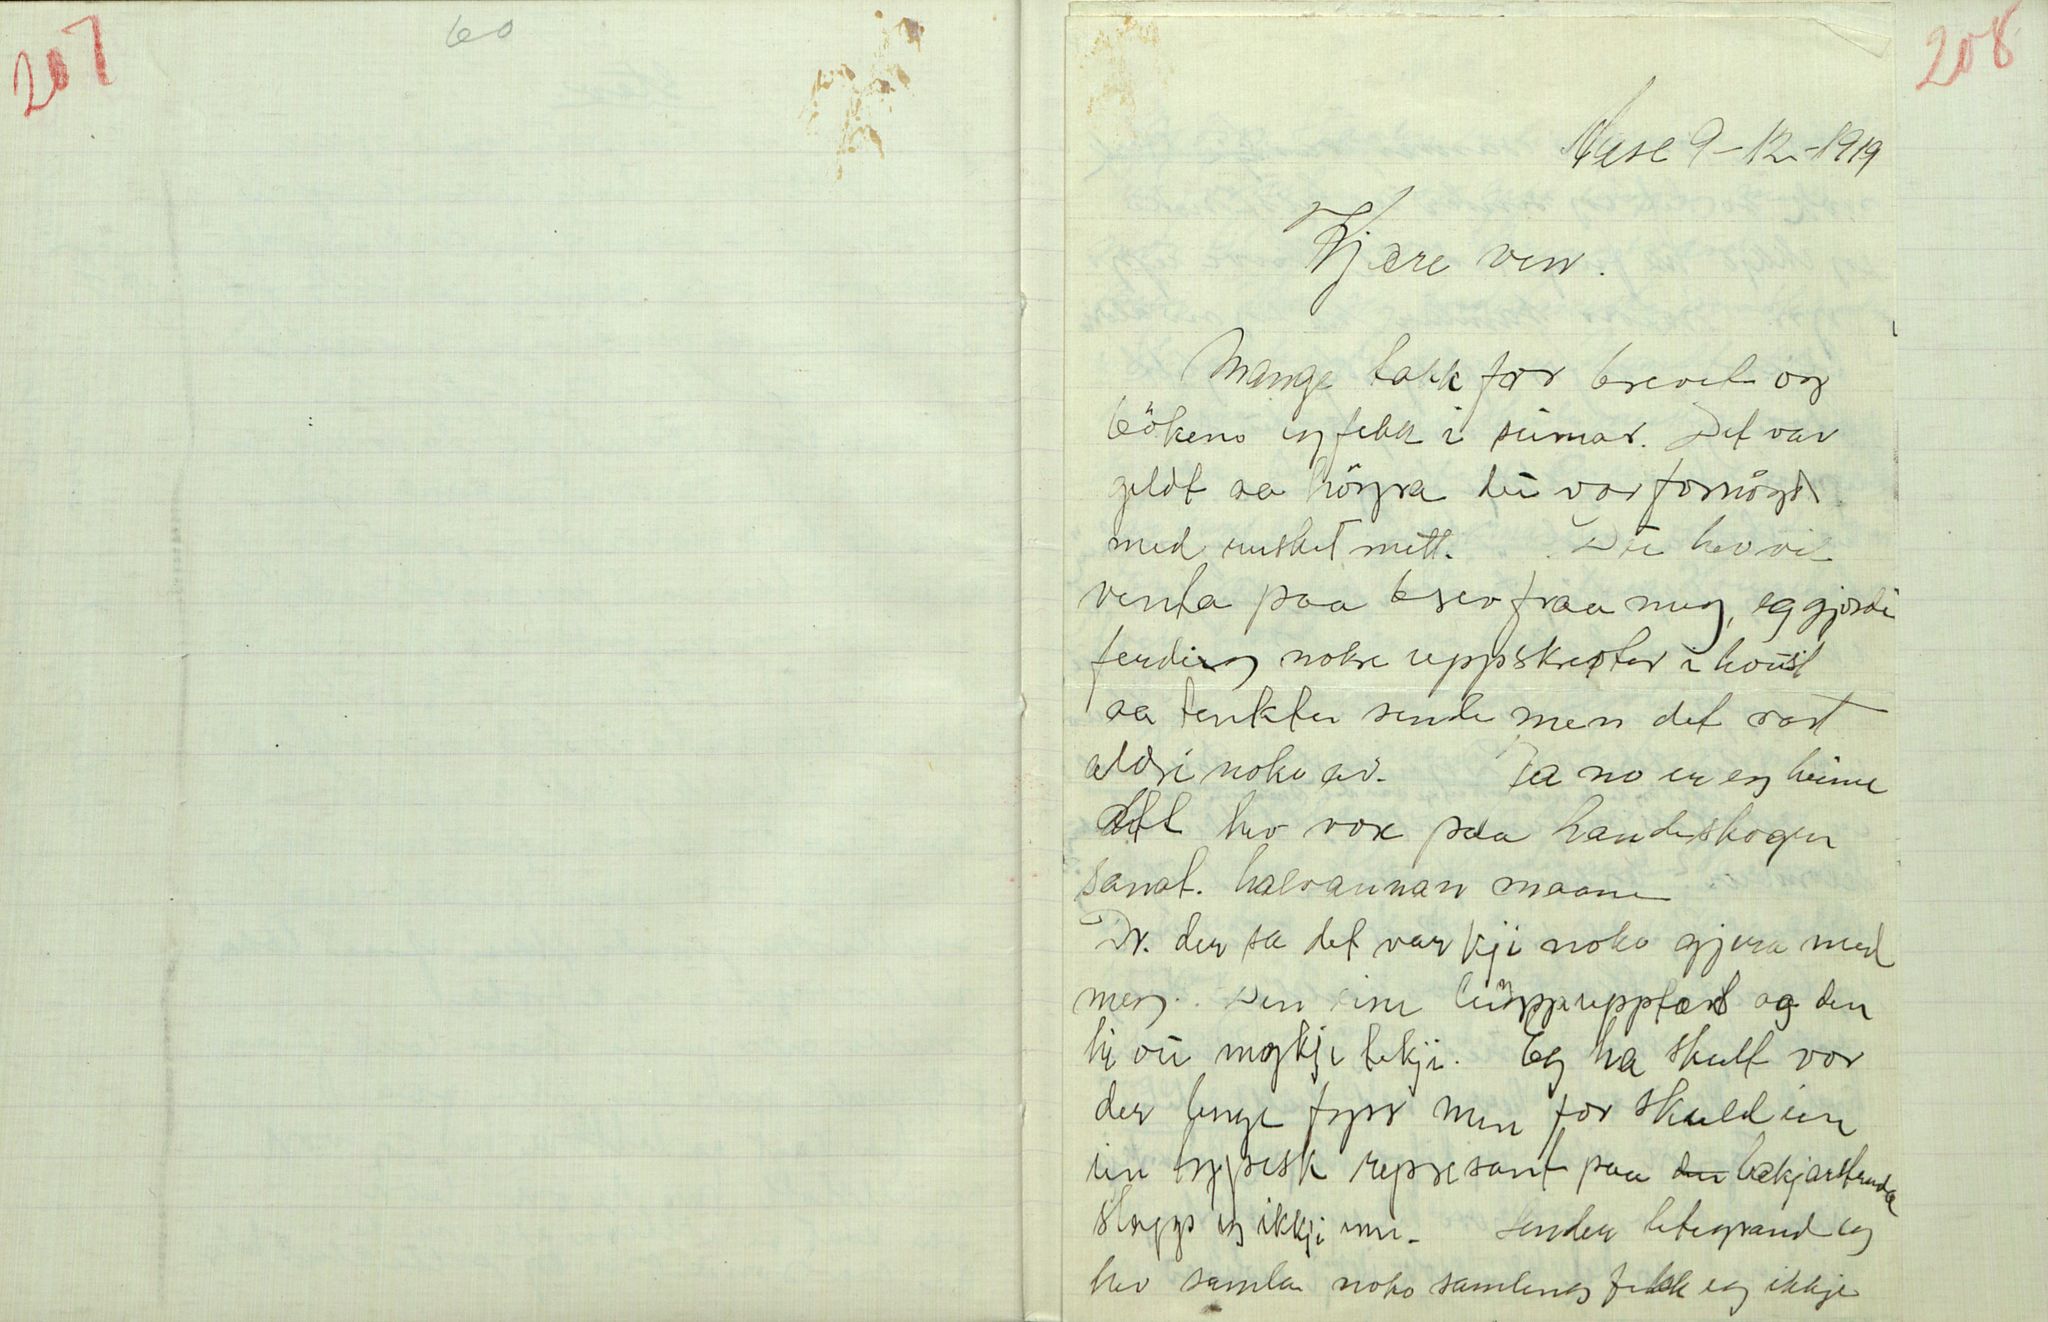 207
60
208
Huse 9-12-1919
Kjære ven.
Mange takk for brevet og
bökeno eg fekk i sumar. Det var
gildt aa höyra du var fornögd
med rusket mitt. Du hev vel
venta paa brev fraa meg, eg gjordi
ferdig nokre uppskrifter i houst
aa tenkte sende men det vart
aldri noko av. Ja no er eg heime
att hev vore paa Landeskogen
Sanat. halvannan maane
Dr. der sa det var kji noko gjera med
meg. Den eine lunga upptært og den
hi ou mykje tekji. Eg ha skult vor
der lenge fyrr men for skuld ein
ein typisk represant paa den bekjarstenda
slapp eg ikkji inn. Sender litegrand eg
hev samla noko samling fekk eg ikkje